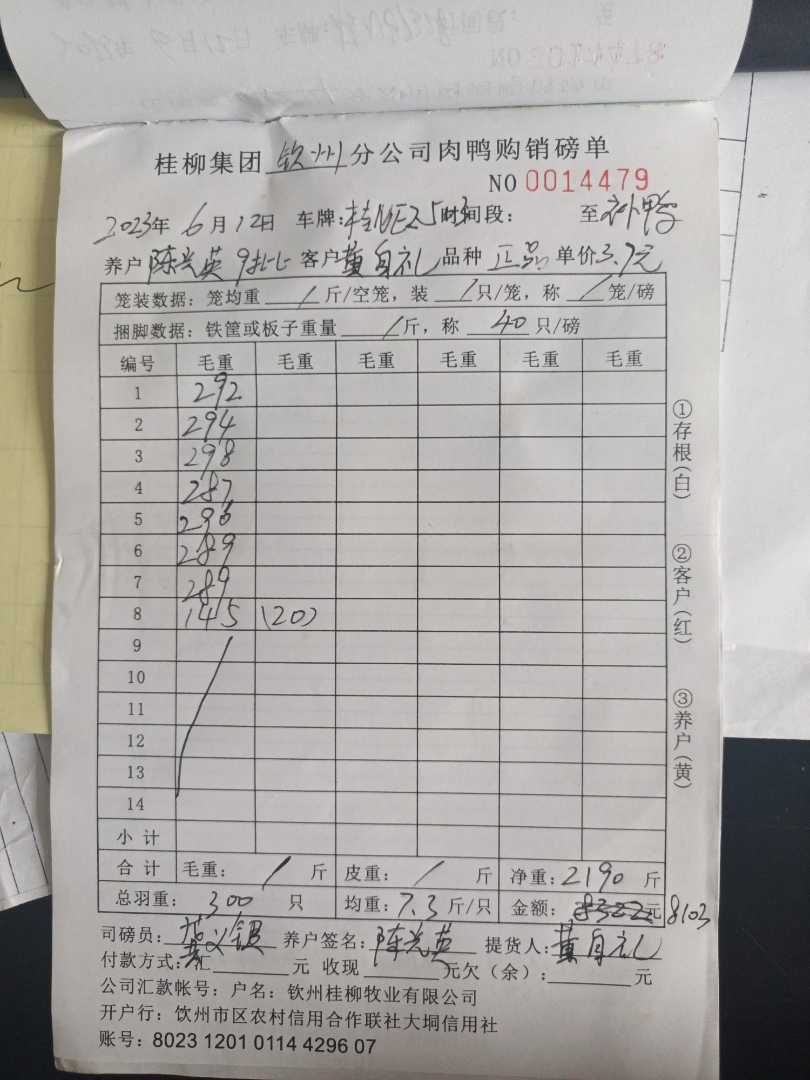 桂柳集团 钦州 分公司肉鸭购销磅单
NO 0014479
2023年 6月12日 车牌: 时间段: 至
养户 陈兰英 9批 客户 黄自礼 品种 正品 单价3.7元
笼装数据: 笼均重 / 斤/空笼, 装 / 只/笼, 称 / 笼/磅
捆脚数据: 铁筐或板子重量 / 斤, 称 40 只/磅
编号 毛重 毛重 毛重 毛重 毛重 毛重
1 292
2 294
3 298
4 287
5 296
6 289
7 289
8 145 (20)
9
10
11
12
13
14
小 计
合 计 毛重: / 斤 皮重: / 斤 净重: 2190 斤
总羽重: 300 只 均重: 7.3 斤/只 金额: 元 8103
司磅员: 养户签名: 陈兰英 提货人: 黄自礼
付款方式: 汇 元 收现 元欠(余): 元
公司汇款帐号: 户名: 钦州桂柳牧业有限公司
开户行: 饮州市区农村信用合作联社大垌信用社
账号: 8023 1201 0114 4296 07
①存根(白)
②客户(红)
③养户(黄)